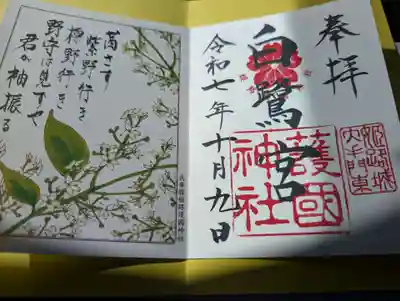 奉拝
姫路城
大手門東
白鷺宮
護國
神社
令和七年十月九日
茜さす
紫野行き
標野行き
野守は見ずや
君が袖振る
兵庫縣姫路護國神社